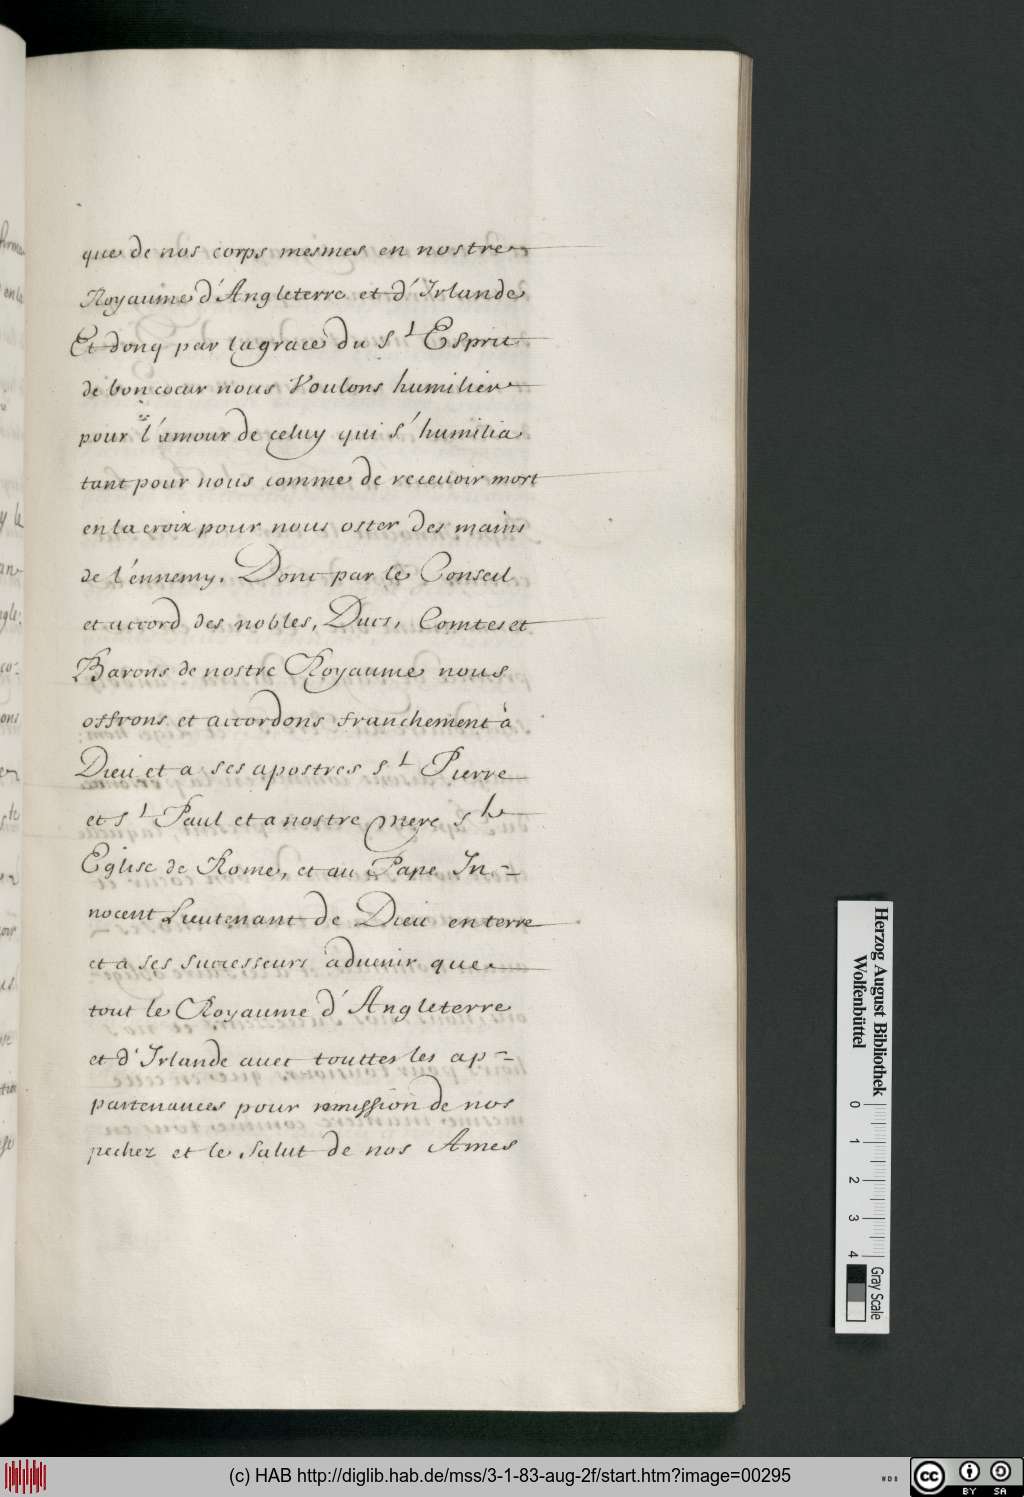 que de nos corps mesmes en nostre
Royaume d'Angleterre et d'Irlande
Et donq par la grace du s.t Esprit
de bon coeur nous Voulons humilier
pour l'amour de celuy qui s'humilia
tant pour nous comme de recevoir mort
en la croix pour nous oster des mains
de l'ennemy. Donc par le Conseil
et accord des nobles, Ducs, Comtes et
Barons de nostre Royaume nous
offrons et accordons franchement à
Dieu et a ses apostres s.t Pierre
et s.t Paul et a nostre mere s.te
Eglise de Rome, et au Pape In-
nocent Lieutenant de Dieu en terre
et a ses successeurs advenir que
tout le Royaume d'Angleterre
et d'Irlande avec touttes les ap-
partenances pour remission de nos
pechez et le Salut de nos Ames
Herzog August Bibliothek
Wolfenbüttel
0 1 2 3 4
Gray Scale
(c) HAB http://diglib.hab.de/mss/3-1-83-aug-2f/start.htm?image=00295
WDB
cc BY SA